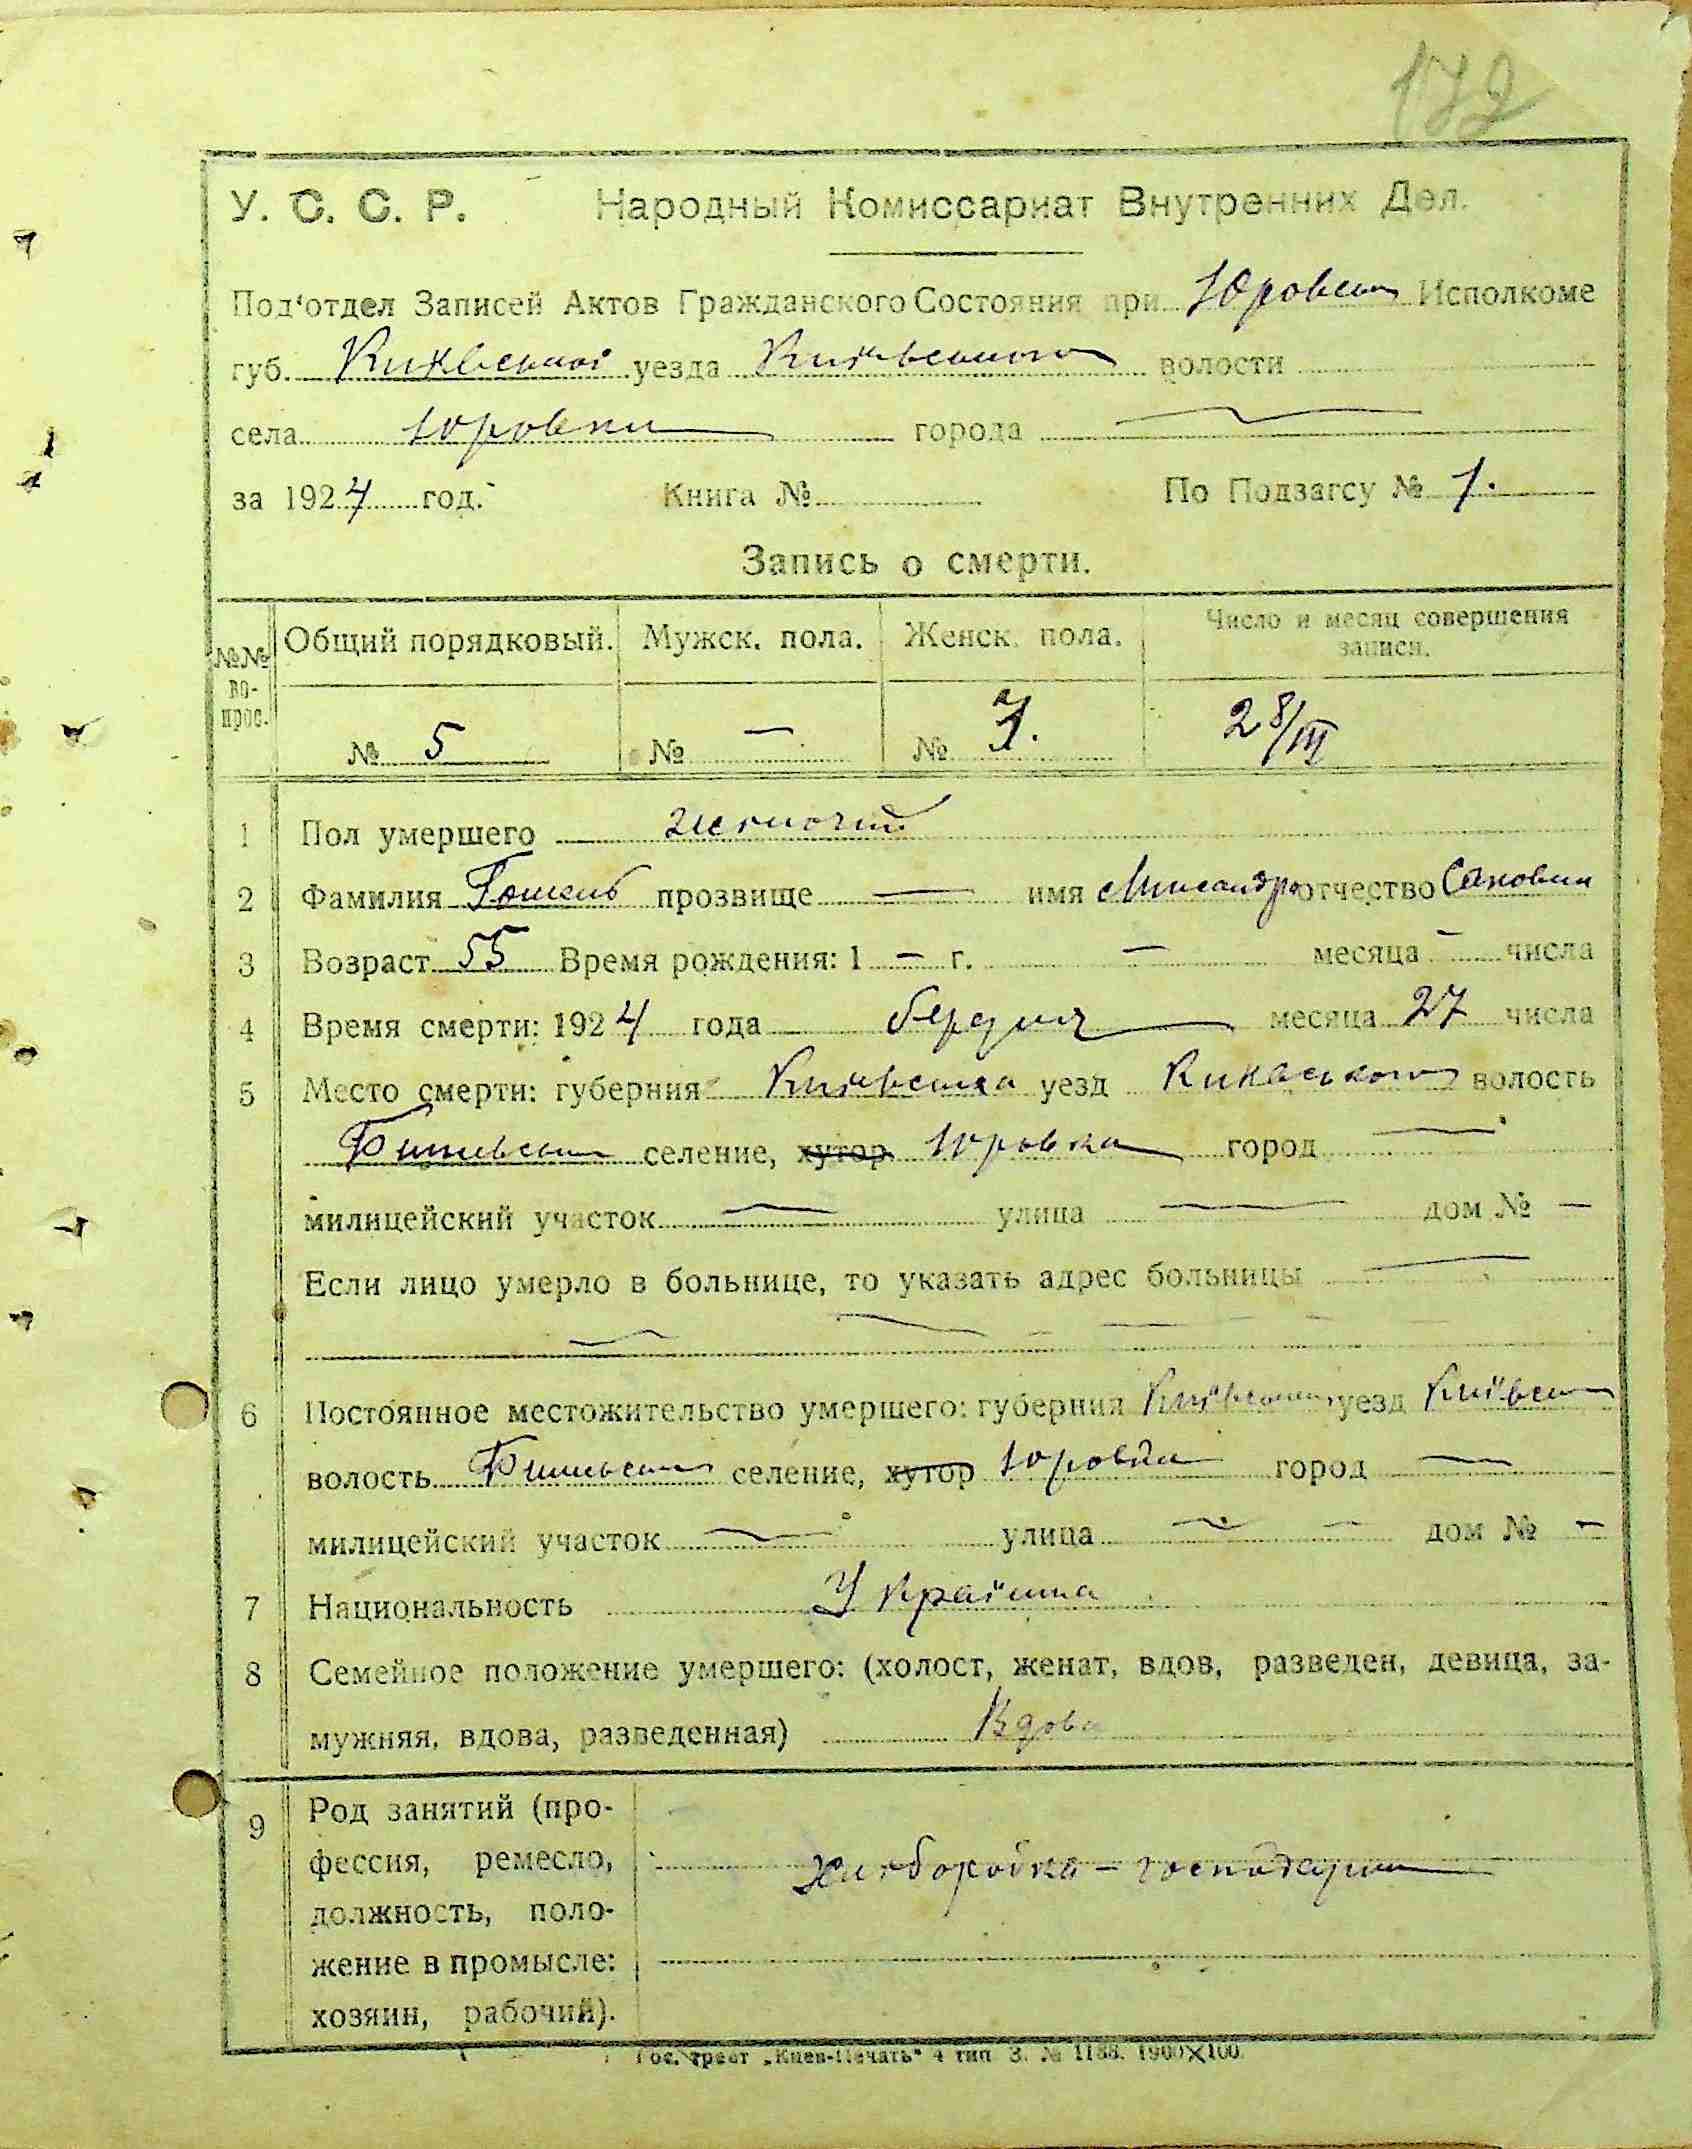 172
У. С. С. Р. Народный Комиссариат Внутренних Дел.
Под'отдел Записей Актов Гражданского Состояния при Юровськ Исполкоме
губ. Київської уезда Київського волости
села Юровки города —
за 1924 год. Книга № По Подзагсу № 1.
Запись о смерти.
№№ вопрос. Общий порядковый. Мужск. пола. Женск. пола. Число и месяц совершения записи.
№ 5 № — № 28/III
1 Пол умершего жиночий
2 Фамилия прозвище — имя отчество
3 Возраст 55 Время рождения: 1 — г. — месяца — числа
4 Время смерти: 1924 года березня месяца 27 числа
5 Место смерти: губерния Київська уезд Київського волость
селение, хутор Юровка город —
милицейский участок — улица — дом № —
Если лицо умерло в больнице, то указать адрес больницы —
— — — —
6 Постоянное местожительство умершего: губерния Київська уезд Київськ
волость селение, хутор Юровка город —
милицейский участок — улица — дом № —
7 Национальность Українка
8 Семейное положение умершего: (холост, женат, вдов, разведен, девица, за-
мужняя, вдова, разведенная) Вдова
9 Род занятий (про-
фессия, ремесло,
должность, поло-
жение в промысле:
хозяин, рабочий).
Хлiборобка – господарка
Гос. трест „Киев-Печать" 4 тип З. № 1188. 1900×100.